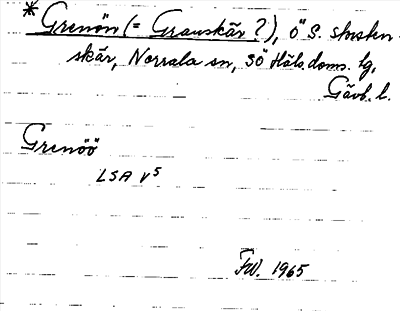 * Grenön (= Granskär ?), ö S. Stusten-
skär, Norrala sn, SÖ Häls. doms. lg,
Gävb. l.
Grenöö
LSA V5
FW. 1965